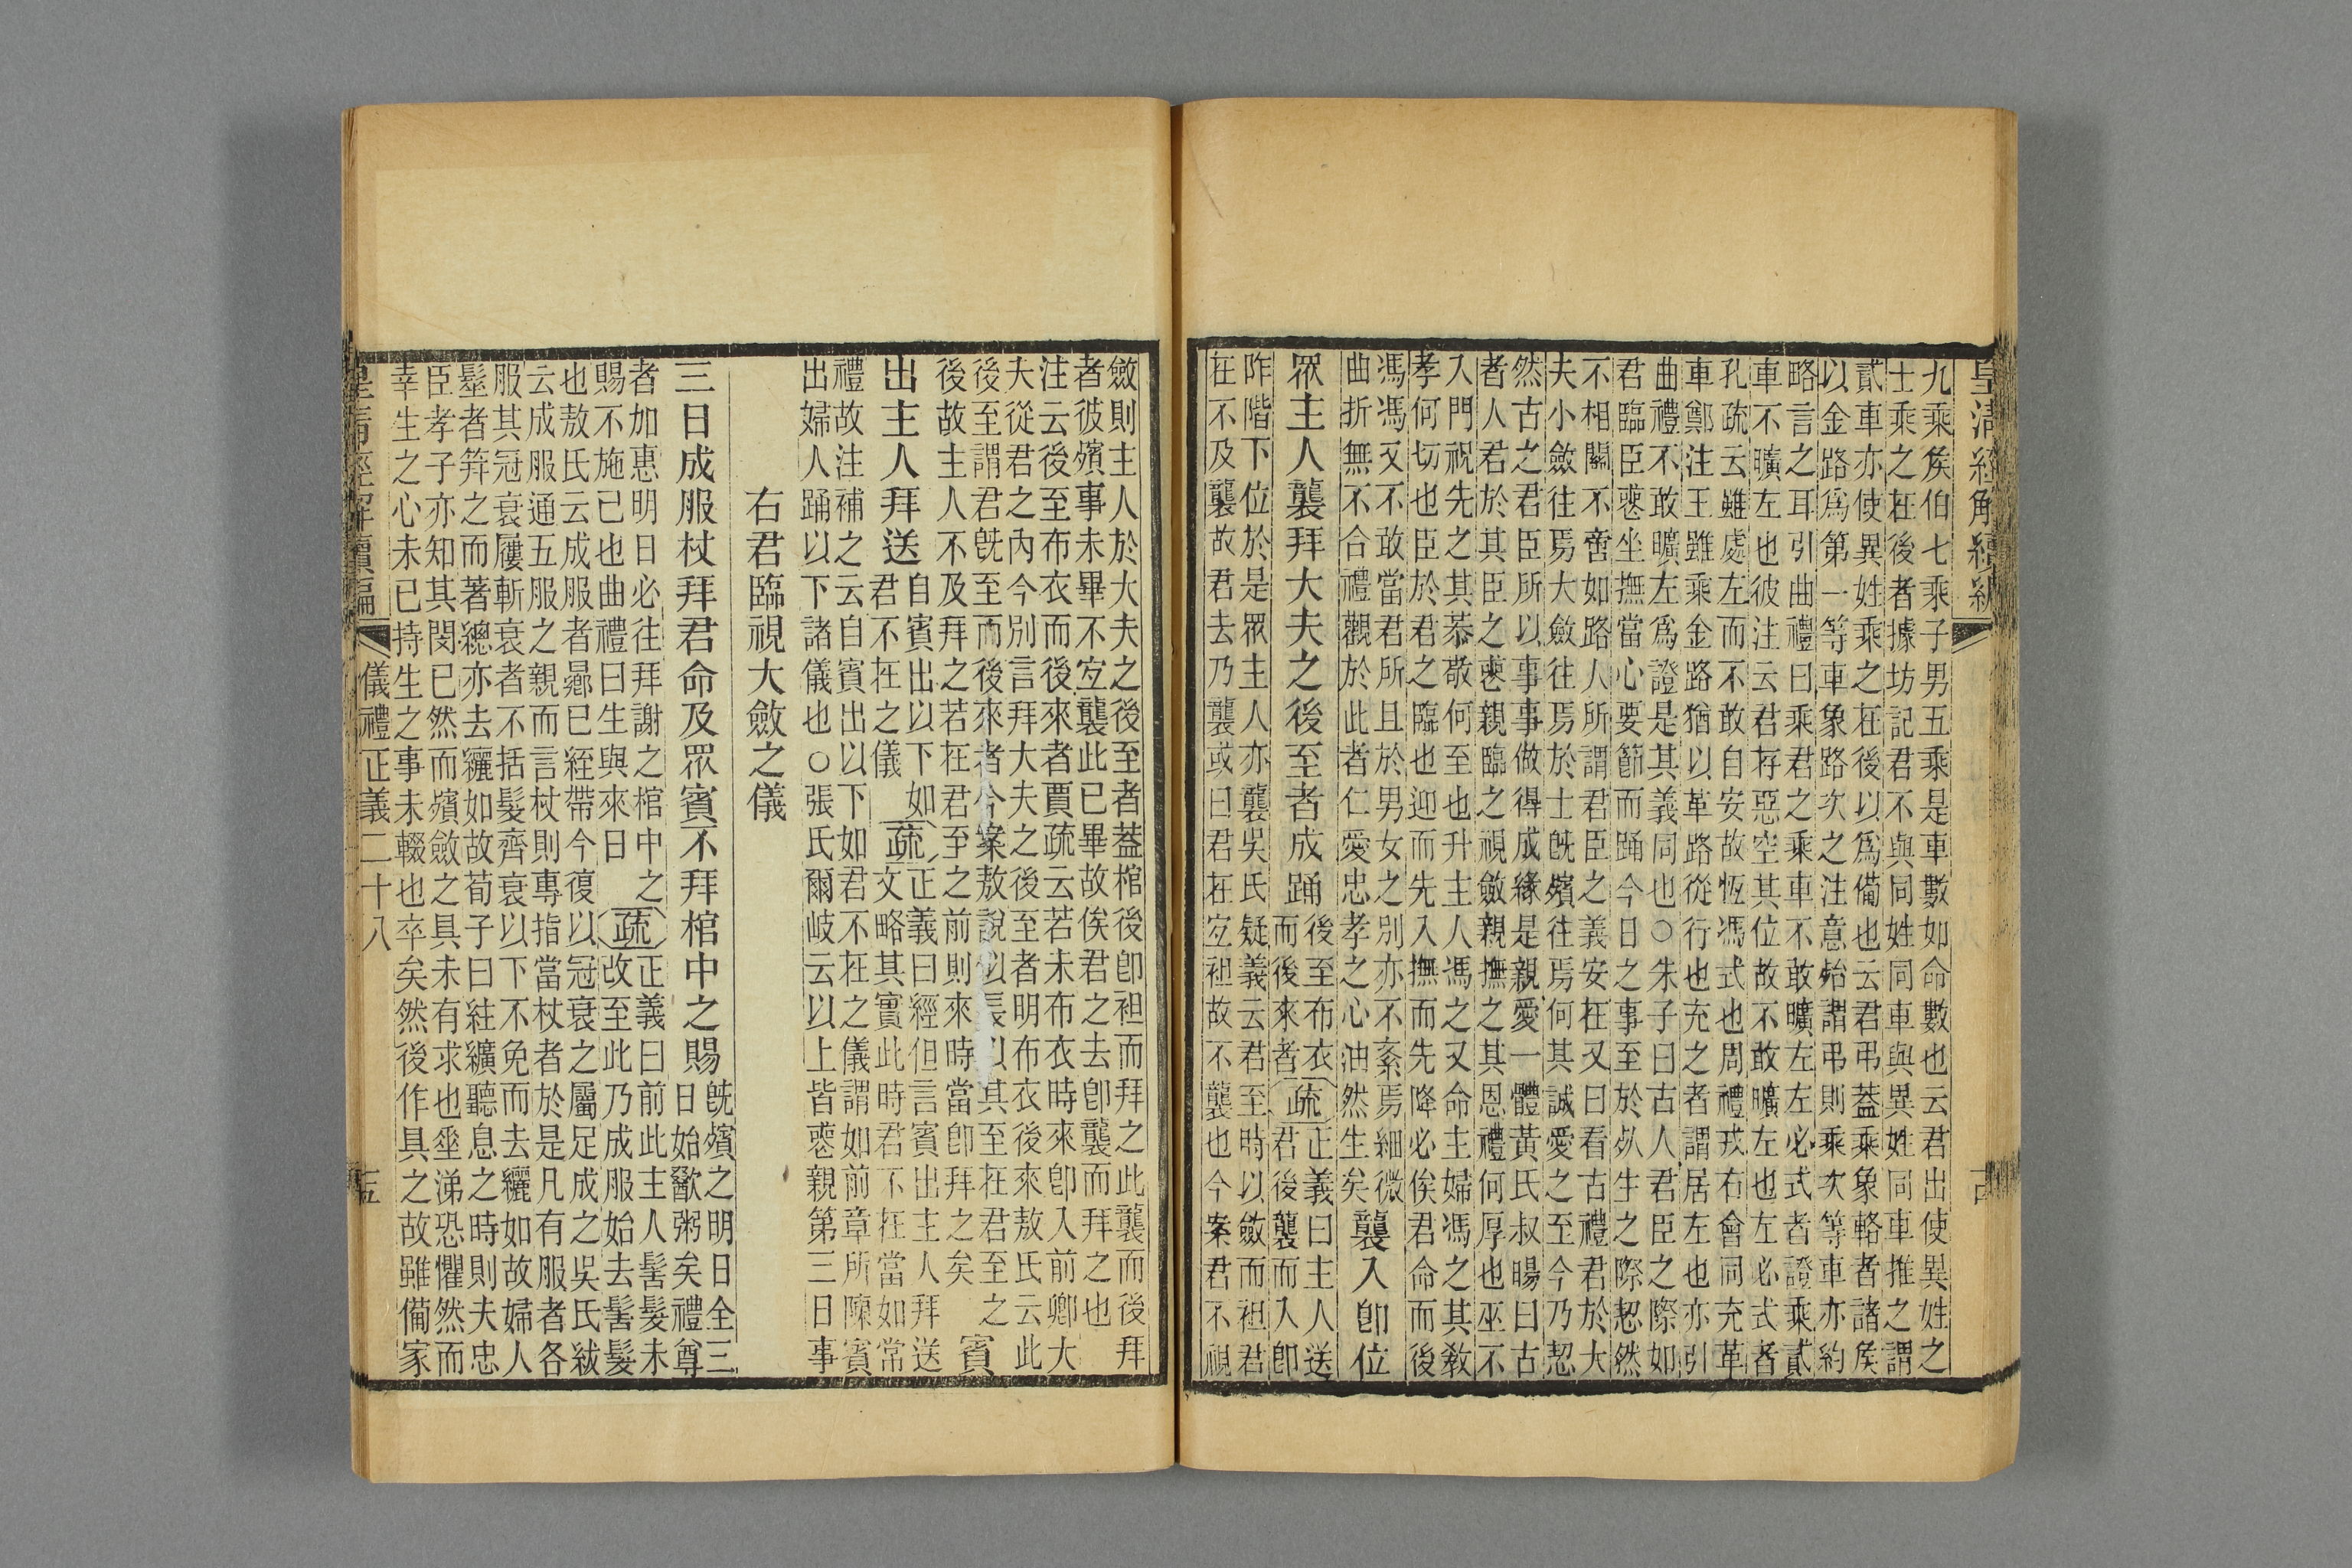 皇清經解續編
九乘矦伯七乘子男五乘是車數如命數也云君出使異姓之
士乘之在後者據坊記君不與同姓同車與異姓同車推之謂
貳車亦使異姓乘之在後以爲備也云君弔蓋乘象輅者諸矦
以金路爲第一等車象路次之注意始謂弔則乘次等車亦約
略言之耳引曲禮曰乘君之乘車不敢曠左左必式者證乘貳
車不曠左也彼注云君存惡空其位故不敢曠左也左必式者
孔疏云雖處左而不敢自安故恆馮式也周禮戎右會同充革
車鄭注王雖乘金路猶以革路從行也充之者謂居左也亦引
曲禮不敢曠左爲證是其義同也○朱子曰古人君臣之際如
君臨臣喪坐撫當心要節而踊今日之事至於死生之際恝然
不相關不啻如路人所謂君臣之義安在又曰看古禮君於大
夫小斂往焉大斂往焉於士旣殯往焉何其誠愛之至今乃恝
然古之君臣所以事事做得成緣是親愛一體黃氏叔暘曰古
者人君於其臣之喪親臨之視斂親撫之其恩禮何厚也巫不
入門祝先之其恭敬何至也升主人馮之又命主婦馮之其敎
孝何切也臣於君之臨也迎而先入撫而先降必俟君命而後
馮馮又不敢當君所且於男女之別亦不紊焉細微
曲折無不合禮觀於此者仁愛忠孝之心油然生矣
襲入卽位
眾主人襲拜大夫之後至者成踊
後至布衣
而後來者
疏
正義曰主人送
君後襲而入卽
阼階下位於是眾主人亦襲吳氏疑義云君至時以斂而袒君
在不及襲故君去乃襲或曰君在宐袒故不襲也今案君不視
斂則主人於大夫之後至者蓋棺後卽袒而拜之此襲而後拜
者彼殯事未畢不宐襲此已畢故俟君之去卽襲而拜之也
注云後至布衣而後來者賈疏云若未布衣時來卽入前卿大
夫從君之內今別言拜大夫之後至者明布衣後來敖氏云此
後至謂君旣至而後來者今案敖說似長以其至在君至之
後故主人不及拜之若在君至之前則來時當卽拜之矣
賓
出主人拜送
自賓出以下如
君不在之儀
疏
正義曰經但言賓出主人拜送
文略其實此時君不在當如常
禮故注補之云自賓出以下如君不在之儀謂如前章所陳賓
出婦人踊以下諸儀也○張氏爾岐云以上皆喪親第三日事
右君臨視大斂之儀
三日成服杖拜君命及眾賓不拜棺中之賜
旣殯之明日全三
日始歠粥矣禮尊
者加惠明日必往拜謝之棺中之
賜不施已也曲禮曰生與來日
疏
正義曰前此主人髻髮未
改至此乃成服始去髻髮
也敖氏云成服者曏已絰帶今復以冠衰之屬足成之吳氏紱
云成服通五服之親而言杖則專指當杖者於是凡有服者各
服其冠衰屨斬衰者不括髮齊衰以下不免而去纚如故婦人
髽者笄之而著總亦去纚如故荀子曰紸纊聽息之時則夫忠
臣孝子亦知其閔已然而殯斂之具未有求也垂涕恐懼然而
幸生之心未已持生之事未輟也卒矣然後作具之故雖備家
皇清經解續編
儀禮正義二十八